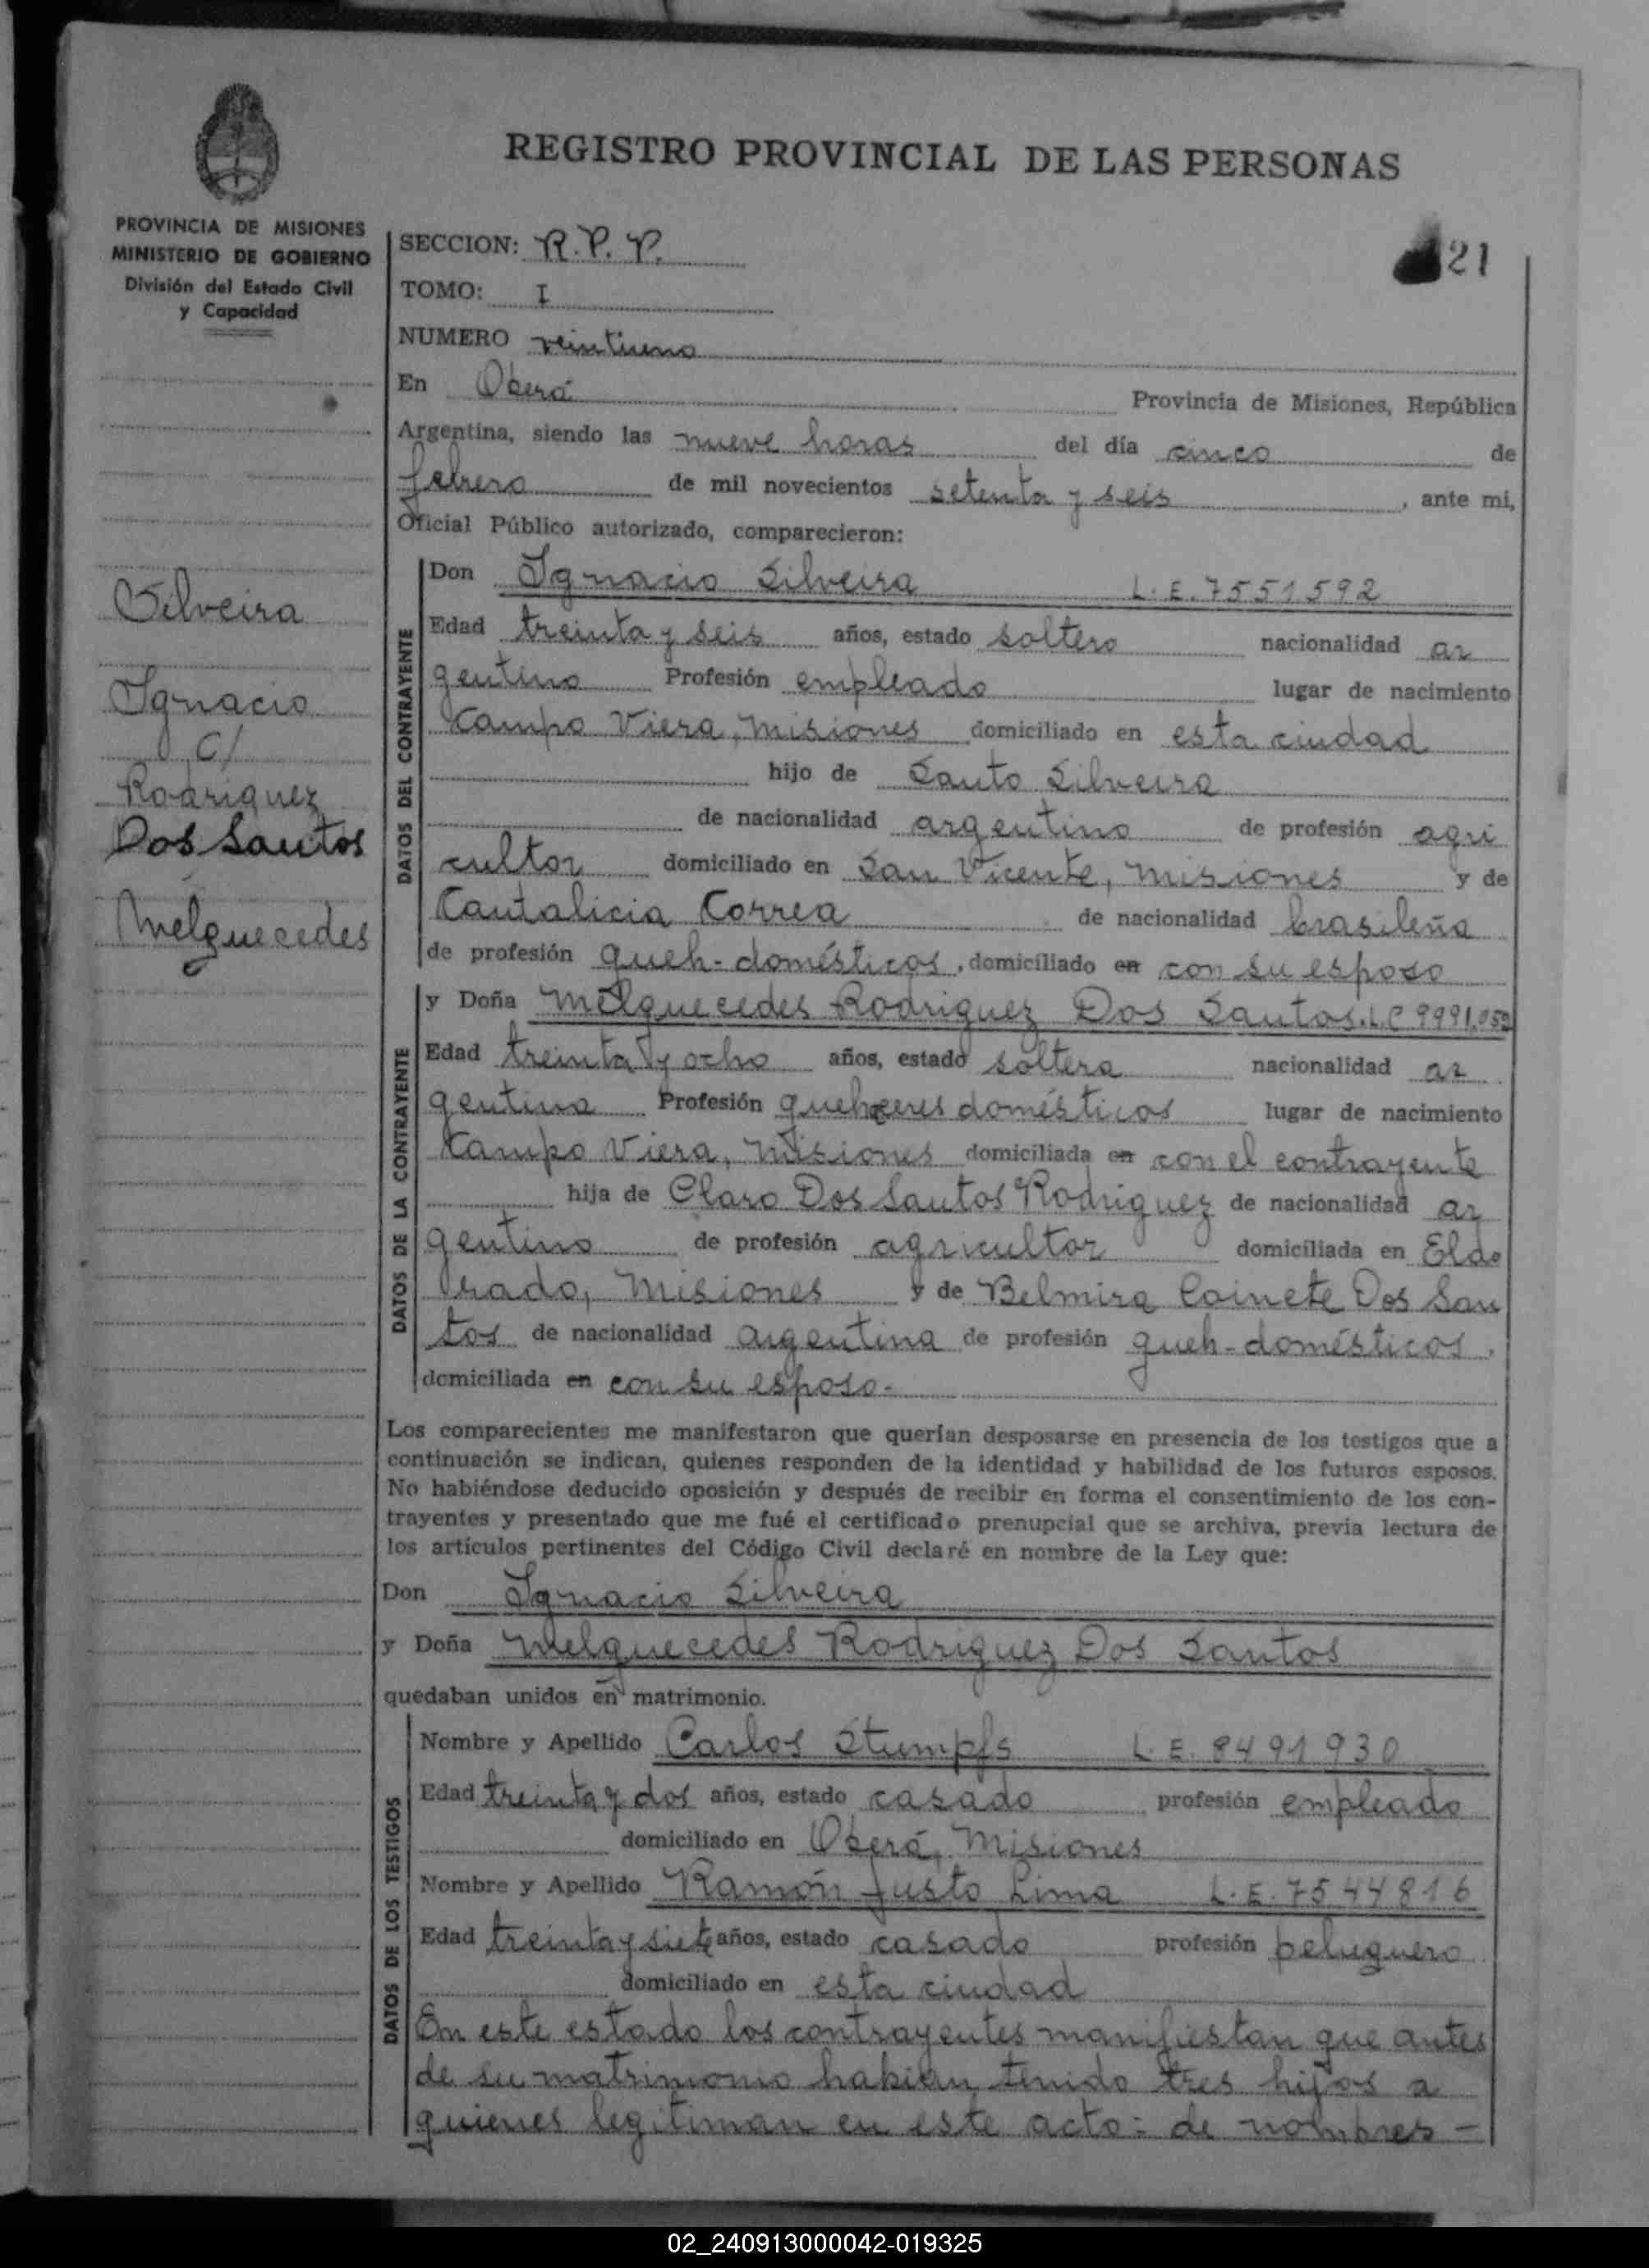 REGISTRO PROVINCIAL DE LAS PERSONAS
PROVINCIA DE MISIONES
MINISTERIO DE GOBIERNO
División del Estado Civil
y Capacidad
21
SECCION: R.P.P.
TOMO: I
NUMERO veintiuno
En Oberá Provincia de Misiones, República
Argentina, siendo las nueve horas del día cinco de
febrero de mil novecientos setenta y seis, ante mi,
Oficial Público autorizado, comparecieron:
Silveira
Ignacio
c/
Rodriguez
Dos Santos
Melquecedes
DATOS DEL CONTRAYENTE
Don Ignacio Silveira L.E. 7551592
Edad treinta y seis años, estado soltero nacionalidad ar
gentino Profesión empleado lugar de nacimiento
Campo Viera, Misiones domiciliado en esta ciudad
hijo de Santo Silveira
de nacionalidad argentino de profesión agri
cultor domiciliado en San Vicente, Misiones y de
Cantalicia Correa de nacionalidad brasileña
de profesión queh-domésticos, domiciliado en con su esposo
DATOS DE LA CONTRAYENTE
y Doña Melquecedes Rodriguez Dos Santos. L.C 9991.059
Edad treinta y ocho años, estado soltera nacionalidad ar
gentina Profesión quehaceres domésticos lugar de nacimiento
Campo Viera, Misiones domiciliada en con el contrayente
hija de Claro Dos Santos Rodriguez de nacionalidad ar
gentino de profesión agricultor domiciliada en Eldo
rado, Misiones y de Belmira Coinete Dos San
tos de nacionalidad argentina de profesión queh-domésticos,
domiciliada en con su esposo.-
Los comparecientes me manifestaron que querían desposarse en presencia de los testigos que a
continuación se indican, quienes responden de la identidad y habilidad de los futuros esposos.
No habiéndose deducido oposición y después de recibir en forma el consentimiento de los con-
trayentes y presentado que me fué el certificado prenupcial que se archiva, previa lectura de
los artículos pertinentes del Código Civil declaré en nombre de la Ley que:
Don Ignacio Silveira
y Doña Melquecedes Rodriguez Dos Santos
quedaban unidos en matrimonio.
DATOS DE LOS TESTIGOS
Nombre y Apellido Carlos Stumpfs L.E. 8491930
Edad treinta y dos años, estado casado profesión empleado
domiciliado en Oberá, Misiones
Nombre y Apellido Ramón Justo Lima L.E. 7544816
Edad treinta y siete años, estado casado profesión peluquero
domiciliado en esta ciudad
En este estado los contrayentes manifiestan que antes
de su matrimonio habían tenido tres hijos a
quienes legitiman en este acto: de nombres -
02_240913000042-019325